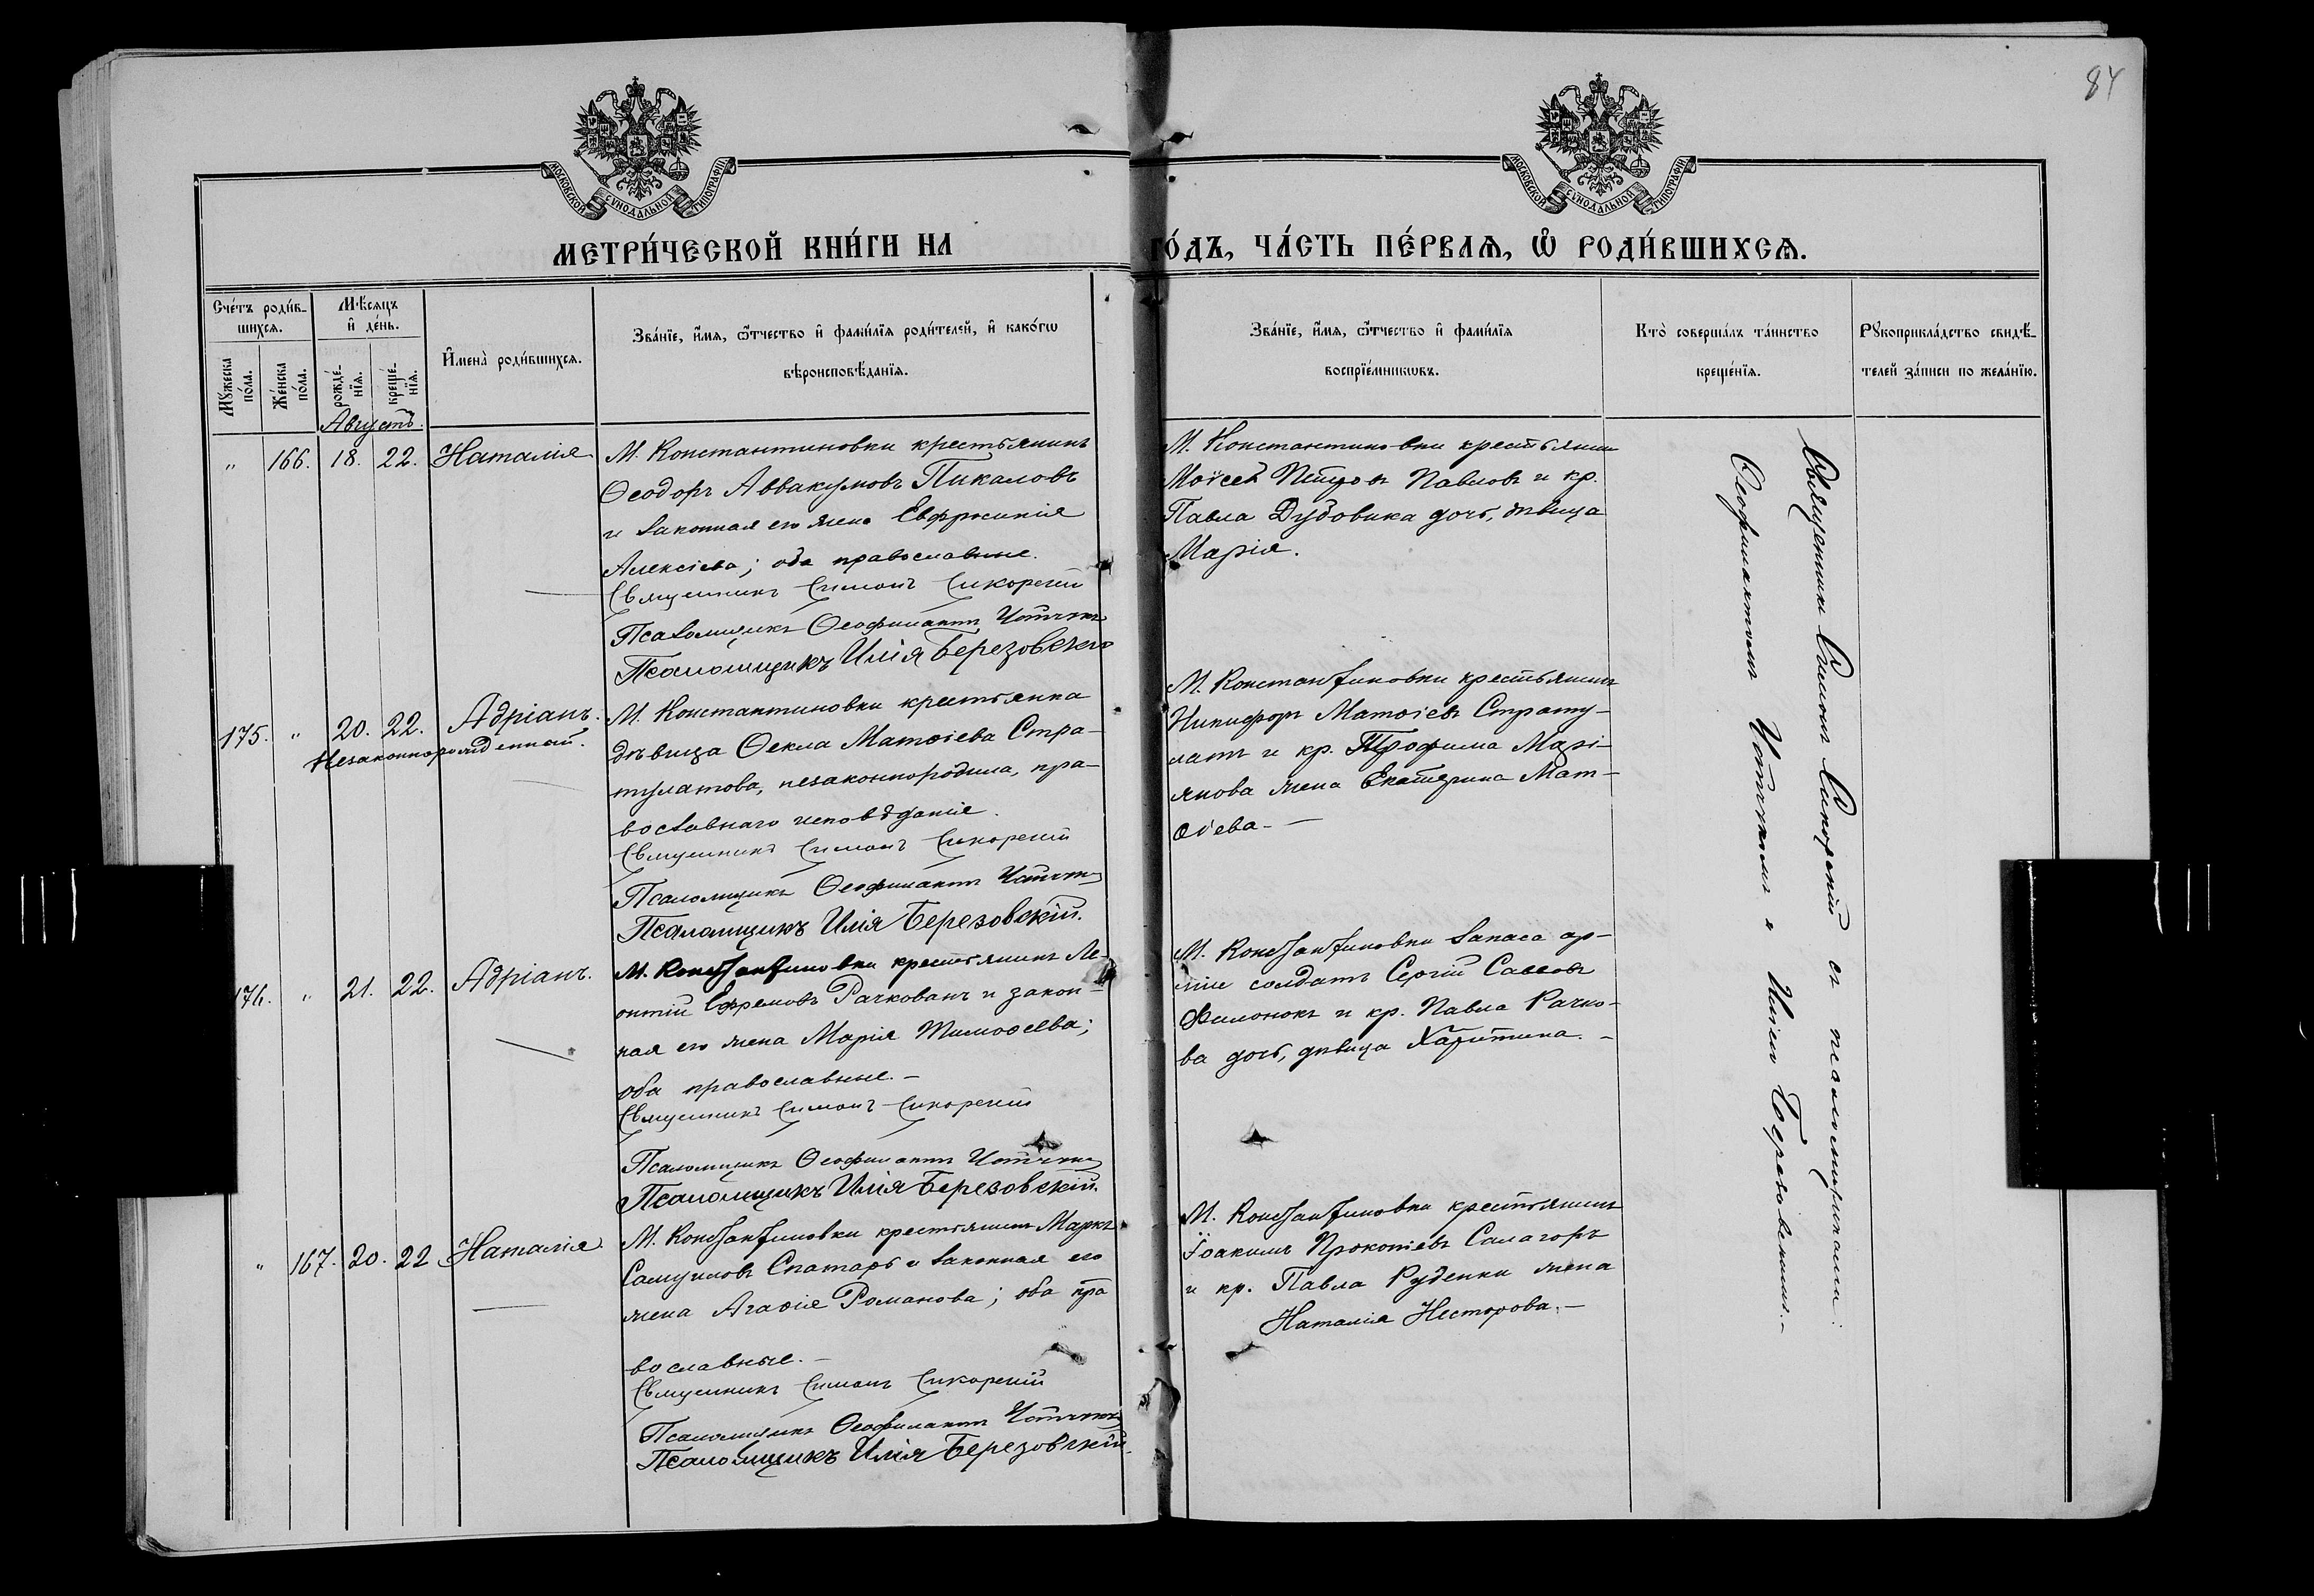 84
МОСКОВСКОЙ СѴНОДАЛЬНОЙ ТИПОГРАФІИ
МОСКОВСКОЙ СѴНОДАЛЬНОЙ ТИПОГРАФІИ
МЕТРИ́ЧЕСКОЙ КНИ́ГИ НА ГО́ДЪ, ЧА́СТЬ ПЕ́РВАѦ, Ѽ РОДИ́ВШИХСѦ.
Сче́тъ роди́в-
шихсѧ.
Мꙋжеска по́ла.
Же́нска по́ла.
Мѣ́сѧцъ
и҆ де́нь.
рожде́-нїѧ.
креще́-нїѧ.
И҆мена̀ роди́вшихсѧ.
Зва́нїе, и҆́мѧ, ѻ҆́тчество и҆ фами́лїѧ роди́телей, и҆ како́гѡ
вѣроисповѣ́данїѧ.
Зва́нїе, и҆́мѧ, ѻ҆́тчество и҆ фами́лїѧ
воспрїе́мникѡвъ.
Кто̀ соверша́лъ та́инство
креще́нїѧ.
Рꙋкоприкла́дство свидѣ́-
телей за́писи по жела́нїю.
Августъ.
" 166. 18. 22. Наталія
М. Константиновки крестьянинъ
Ѳеодоръ Аввакумовъ Пикаловъ
и законная его жена Евфросинія
Алексіева; оба православные.
Священникъ Симонъ Сикорскій
Псаломщикъ Ѳеофилактъ
Псаломщикъ Илія Березовскій
М. Константиновки крестьянин
Моісей Петровъ Павловъ и кр.
Павла Дубовика дочь, дѣвица
Марія.
175. " 20. 22. Адріанъ.
Незаконнорожденный.
М. Константиновки крестьянка
дѣвица Ѳекла Матѳіева Стра-
тулатова, незаконнородила, пра-
вославнаго исповѣданія.
Священникъ Симонъ Сикорскій
Псаломщикъ Ѳеофилактъ
Псаломщикъ Илія Березовскій.
М. Константиновки крестьянинъ
Никифоръ Матѳіевъ Страту-
латъ и кр. Трофима Марі-
янова жена Екатерина Мат-
ѳіева. —
176. " 21. 22. Адріанъ.
М. Константиновки крестьянинъ Ле-
онтій Ефремовъ Рачкованъ и закон-
ная его жена Марія Тимоѳеева;
оба православные. —
Священникъ Симонъ Сикорскій
Псаломщикъ Ѳеофилактъ
Псаломщикъ Илія Березовскій.
М. Константиновки запаса ар-
міи солдатъ Сергій Саввовъ
Филонокъ и кр. Павла Рачко-
ва дочь, дѣвица Харитина. —
" 167. 20. 22 Наталія.
М. Константиновки крестьянинъ Маркъ
Самуиловъ Спатарь и законная его
жена Агаѳія Романова; оба пра
вославные. —
Священникъ Симонъ Сикорскій
Псаломщикъ Ѳеофилактъ
Псаломщикъ Илія Березовскій.
М. Константиновки крестьянинъ
Іоакимъ Прокопіевъ Салагоръ
и кр. Павла Руденки жена
Наталія Несторова. —
Священникъ Симонъ Сикорскій съ псаломщиками:
Ѳеофилактомъ и Иліею Березовскимъ. —